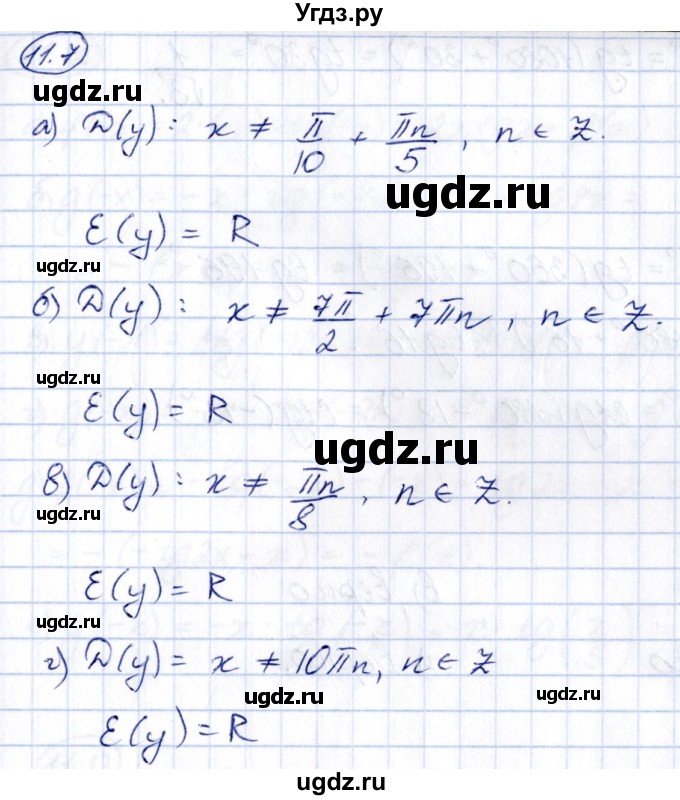 Угдз.ру
11.7
ugdz.ru
а) D(y): x ≠ π/10 + πn/5, n ∈ Z.
ugdz.ru
E(y) = R
ugdz.ru
б) D(y): x ≠ 7π/2 + 7πn, n ∈ Z.
ugdz.ru
E(y) = R
ugdz.ru
в) D(y): x ≠ πn/8, n ∈ Z.
ugdz.ru
E(y) = R
ugdz.ru
г) D(y) = x ≠ 10πn, n ∈ Z
ugdz.ru
ugdz.ru
E(y) = R
ugdz.ru